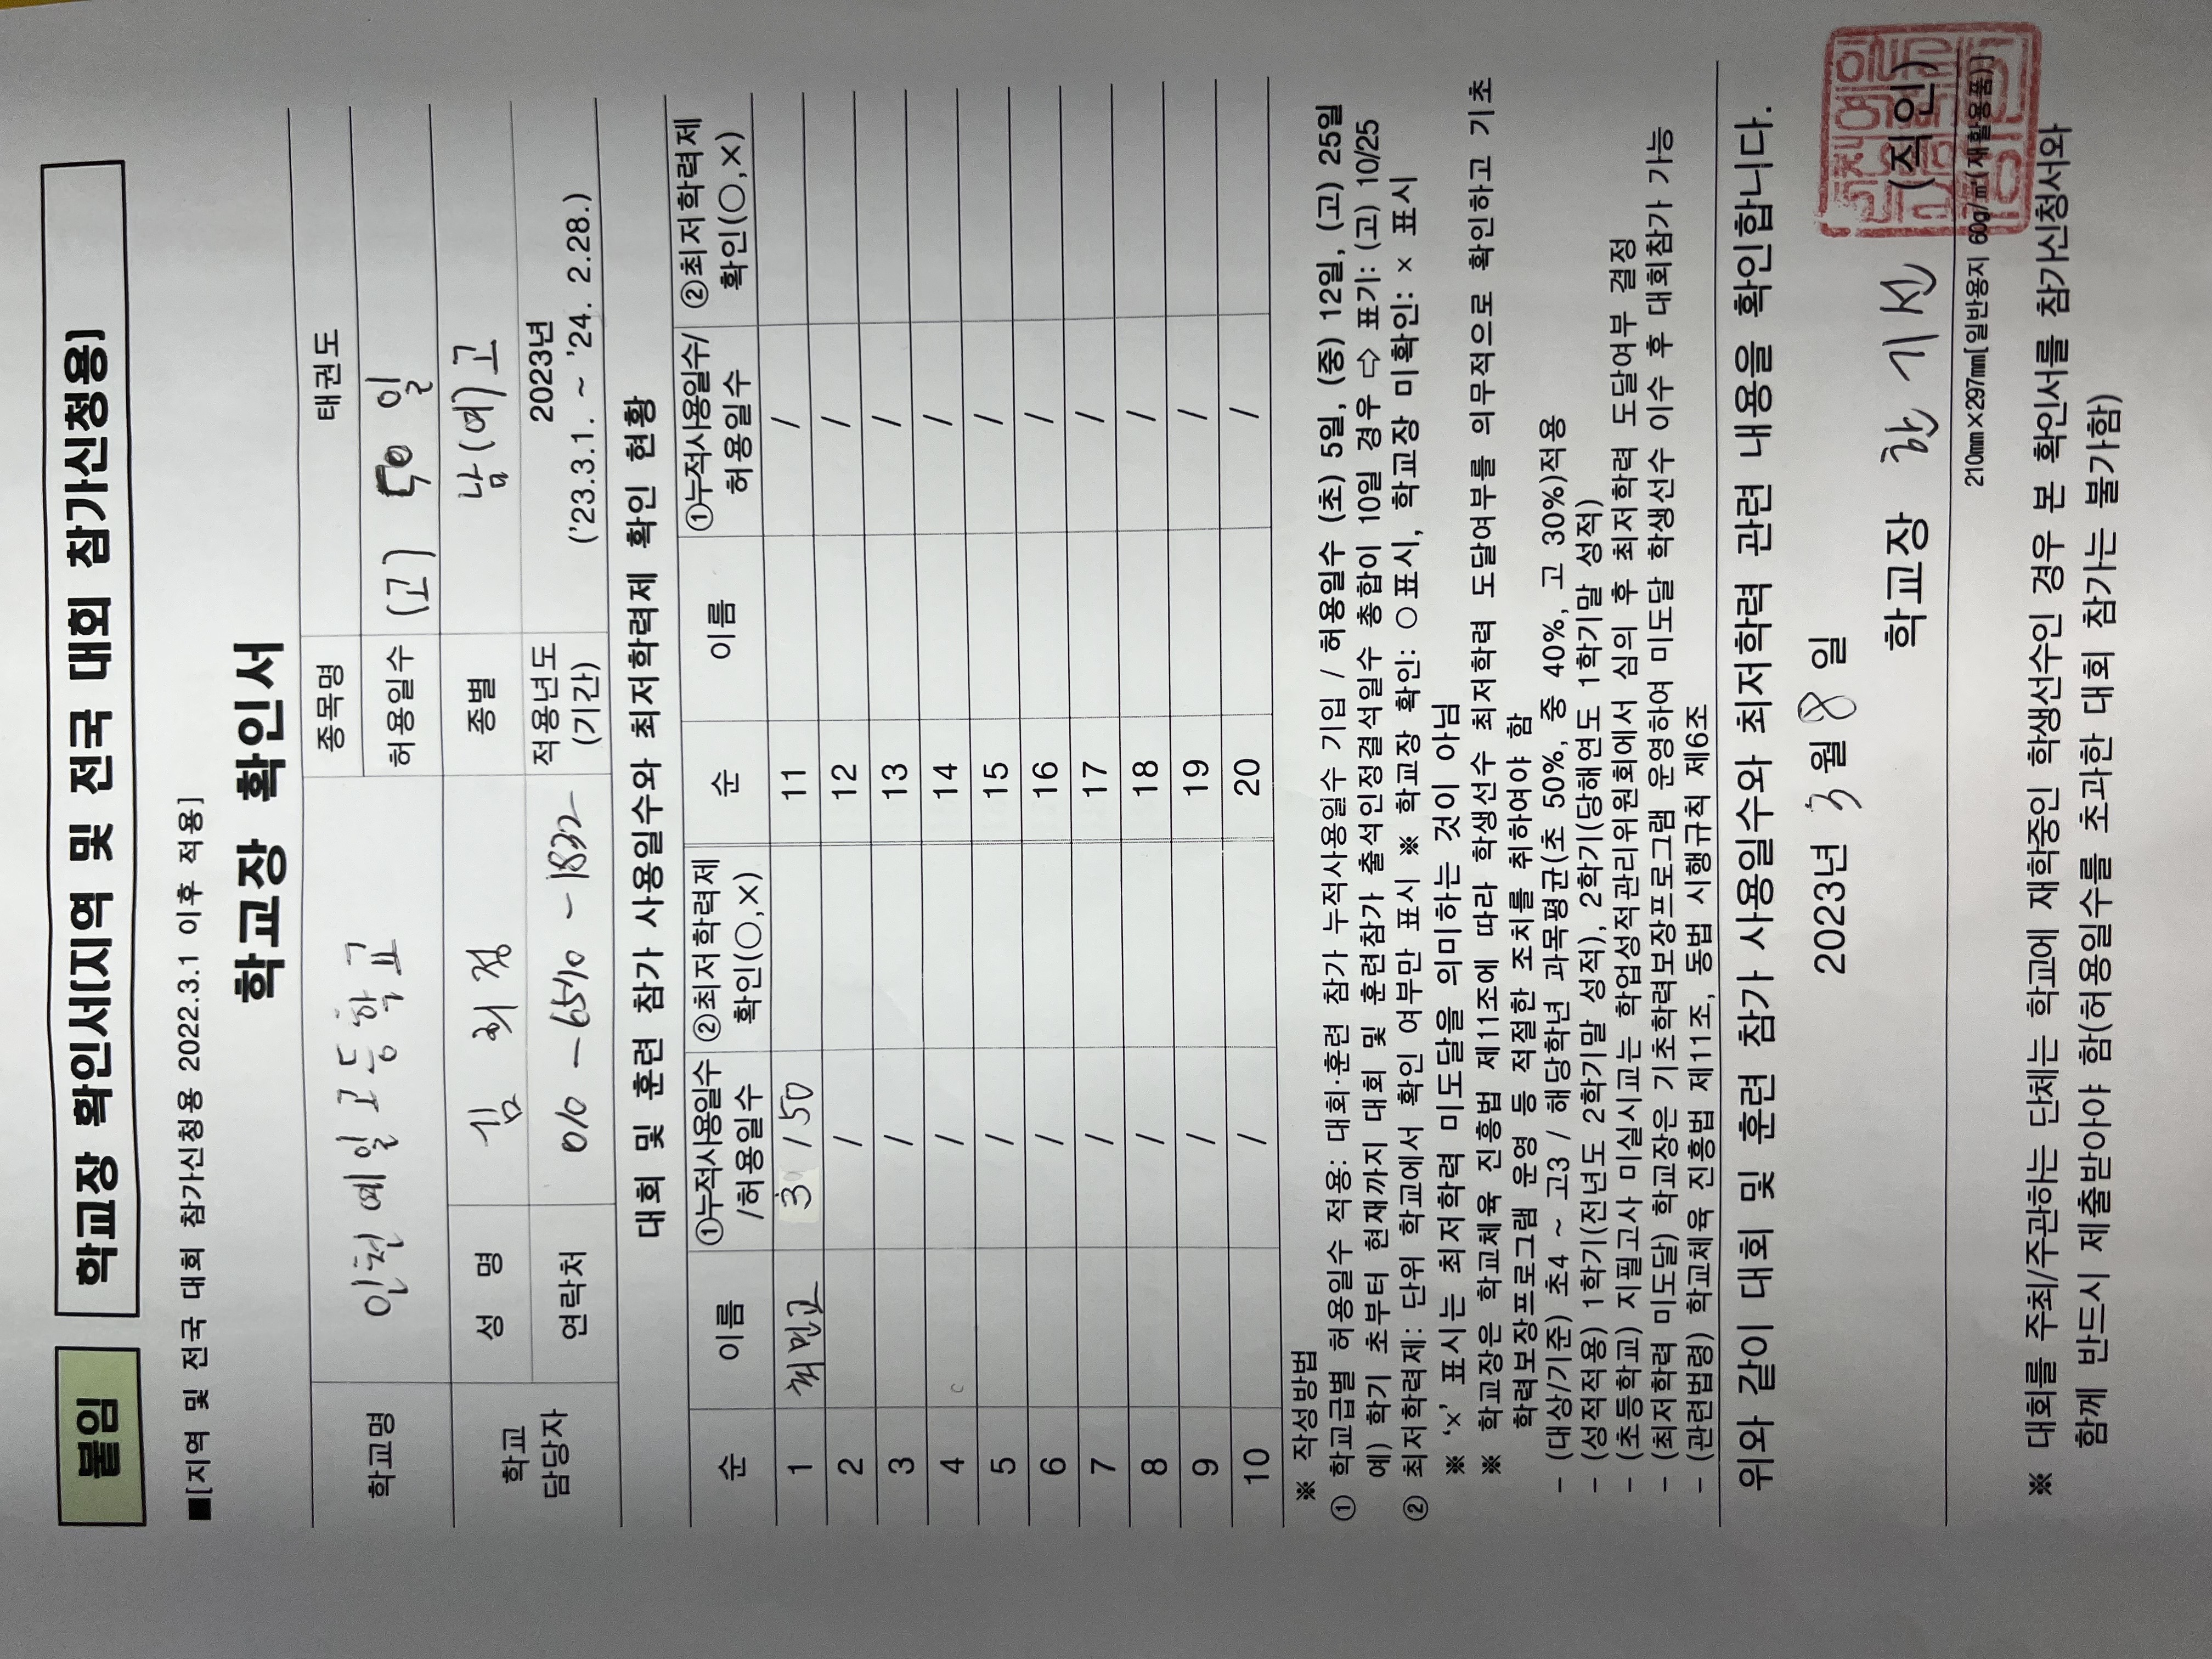 붙임 학교장 확인서[지역 및 전국 대회 참가신청용]
■[지역 및 전국 대회 참가신청용 2022.3.1 이후 적용]
학교장 확인서
학교명 인천예일고등학교 종목명 태권도
허용일수 (고) 50 일
학교 담당자 성 명 김 희 정 종별 남(여)고
연락처 010-6510-1832 적용년도 (기간) 2023년 ('23.3.1. ~ '24. 2.28.)
대회 및 훈련 참가 사용일수와 최저학력제 확인 현황
순 이름 ①누적사용일수 /허용일수 ②최저학력제 확인(○,×) 순 이름 ①누적사용일수/ 허용일수 ②최저학력제 확인(○,×)
1 3 / 50 11 /
2 / 12 /
3 / 13 /
4 / 14 /
5 / 15 /
6 / 16 /
7 / 17 /
8 / 18 /
9 / 19 /
10 / 20 /
※ 작성방법
① 학교급별 허용일수 적용: 대회·훈련 참가 누적사용일수 기입 / 허용일수 (초) 5일, (중) 12일, (고) 25일
예) 학기 초부터 현재까지 대회 및 훈련참가 출석인정결석일수 총합이 10일 경우 ⇨ 표기: (고) 10/25
② 최저학력제: 단위 학교에서 확인 여부만 표시 ※ 학교장 확인: ○표시, 학교장 미확인: × 표시
※ '×' 표시는 최저학력 미도달을 의미하는 것이 아님
※ 학교장은 학교체육 진흥법 제11조에 따라 학생선수 최저학력 도달여부를 의무적으로 확인하고 기초
학력보장프로그램 운영 등 적절한 조치를 취하여야 함
- (대상/기준) 초4 ~ 고3 / 해당학년 과목평균(초 50%, 중 40%, 고 30%)적용
- (성적적용) 1학기(전년도 2학기말 성적), 2학기(당해연도 1학기말 성적)
- (초등학교) 지필고사 미실시교는 학업성적관리위원회에서 심의 후 최저학력 도달여부 결정
- (최저학력 미도달) 학교장은 기초학력보장프로그램 운영하여 미도달 학생선수 이수 후 대회참가 가능
- (관련법령) 학교체육 진흥법 제11조, 동법 시행규칙 제6조
위와 같이 대회 및 훈련 참가 사용일수와 최저학력 관련 내용을 확인합니다.
2023년 3 월 8 일
학교장 한 기 선 (직인)
210㎜×297㎜[일반용지 60g/㎡(재활용품)]
※ 대회를 주최/주관하는 단체는 학교에 재학중인 학생선수인 경우 본 확인서를 참가신청서와
함께 반드시 제출받아야 함(허용일수를 초과한 대회 참가는 불가함)